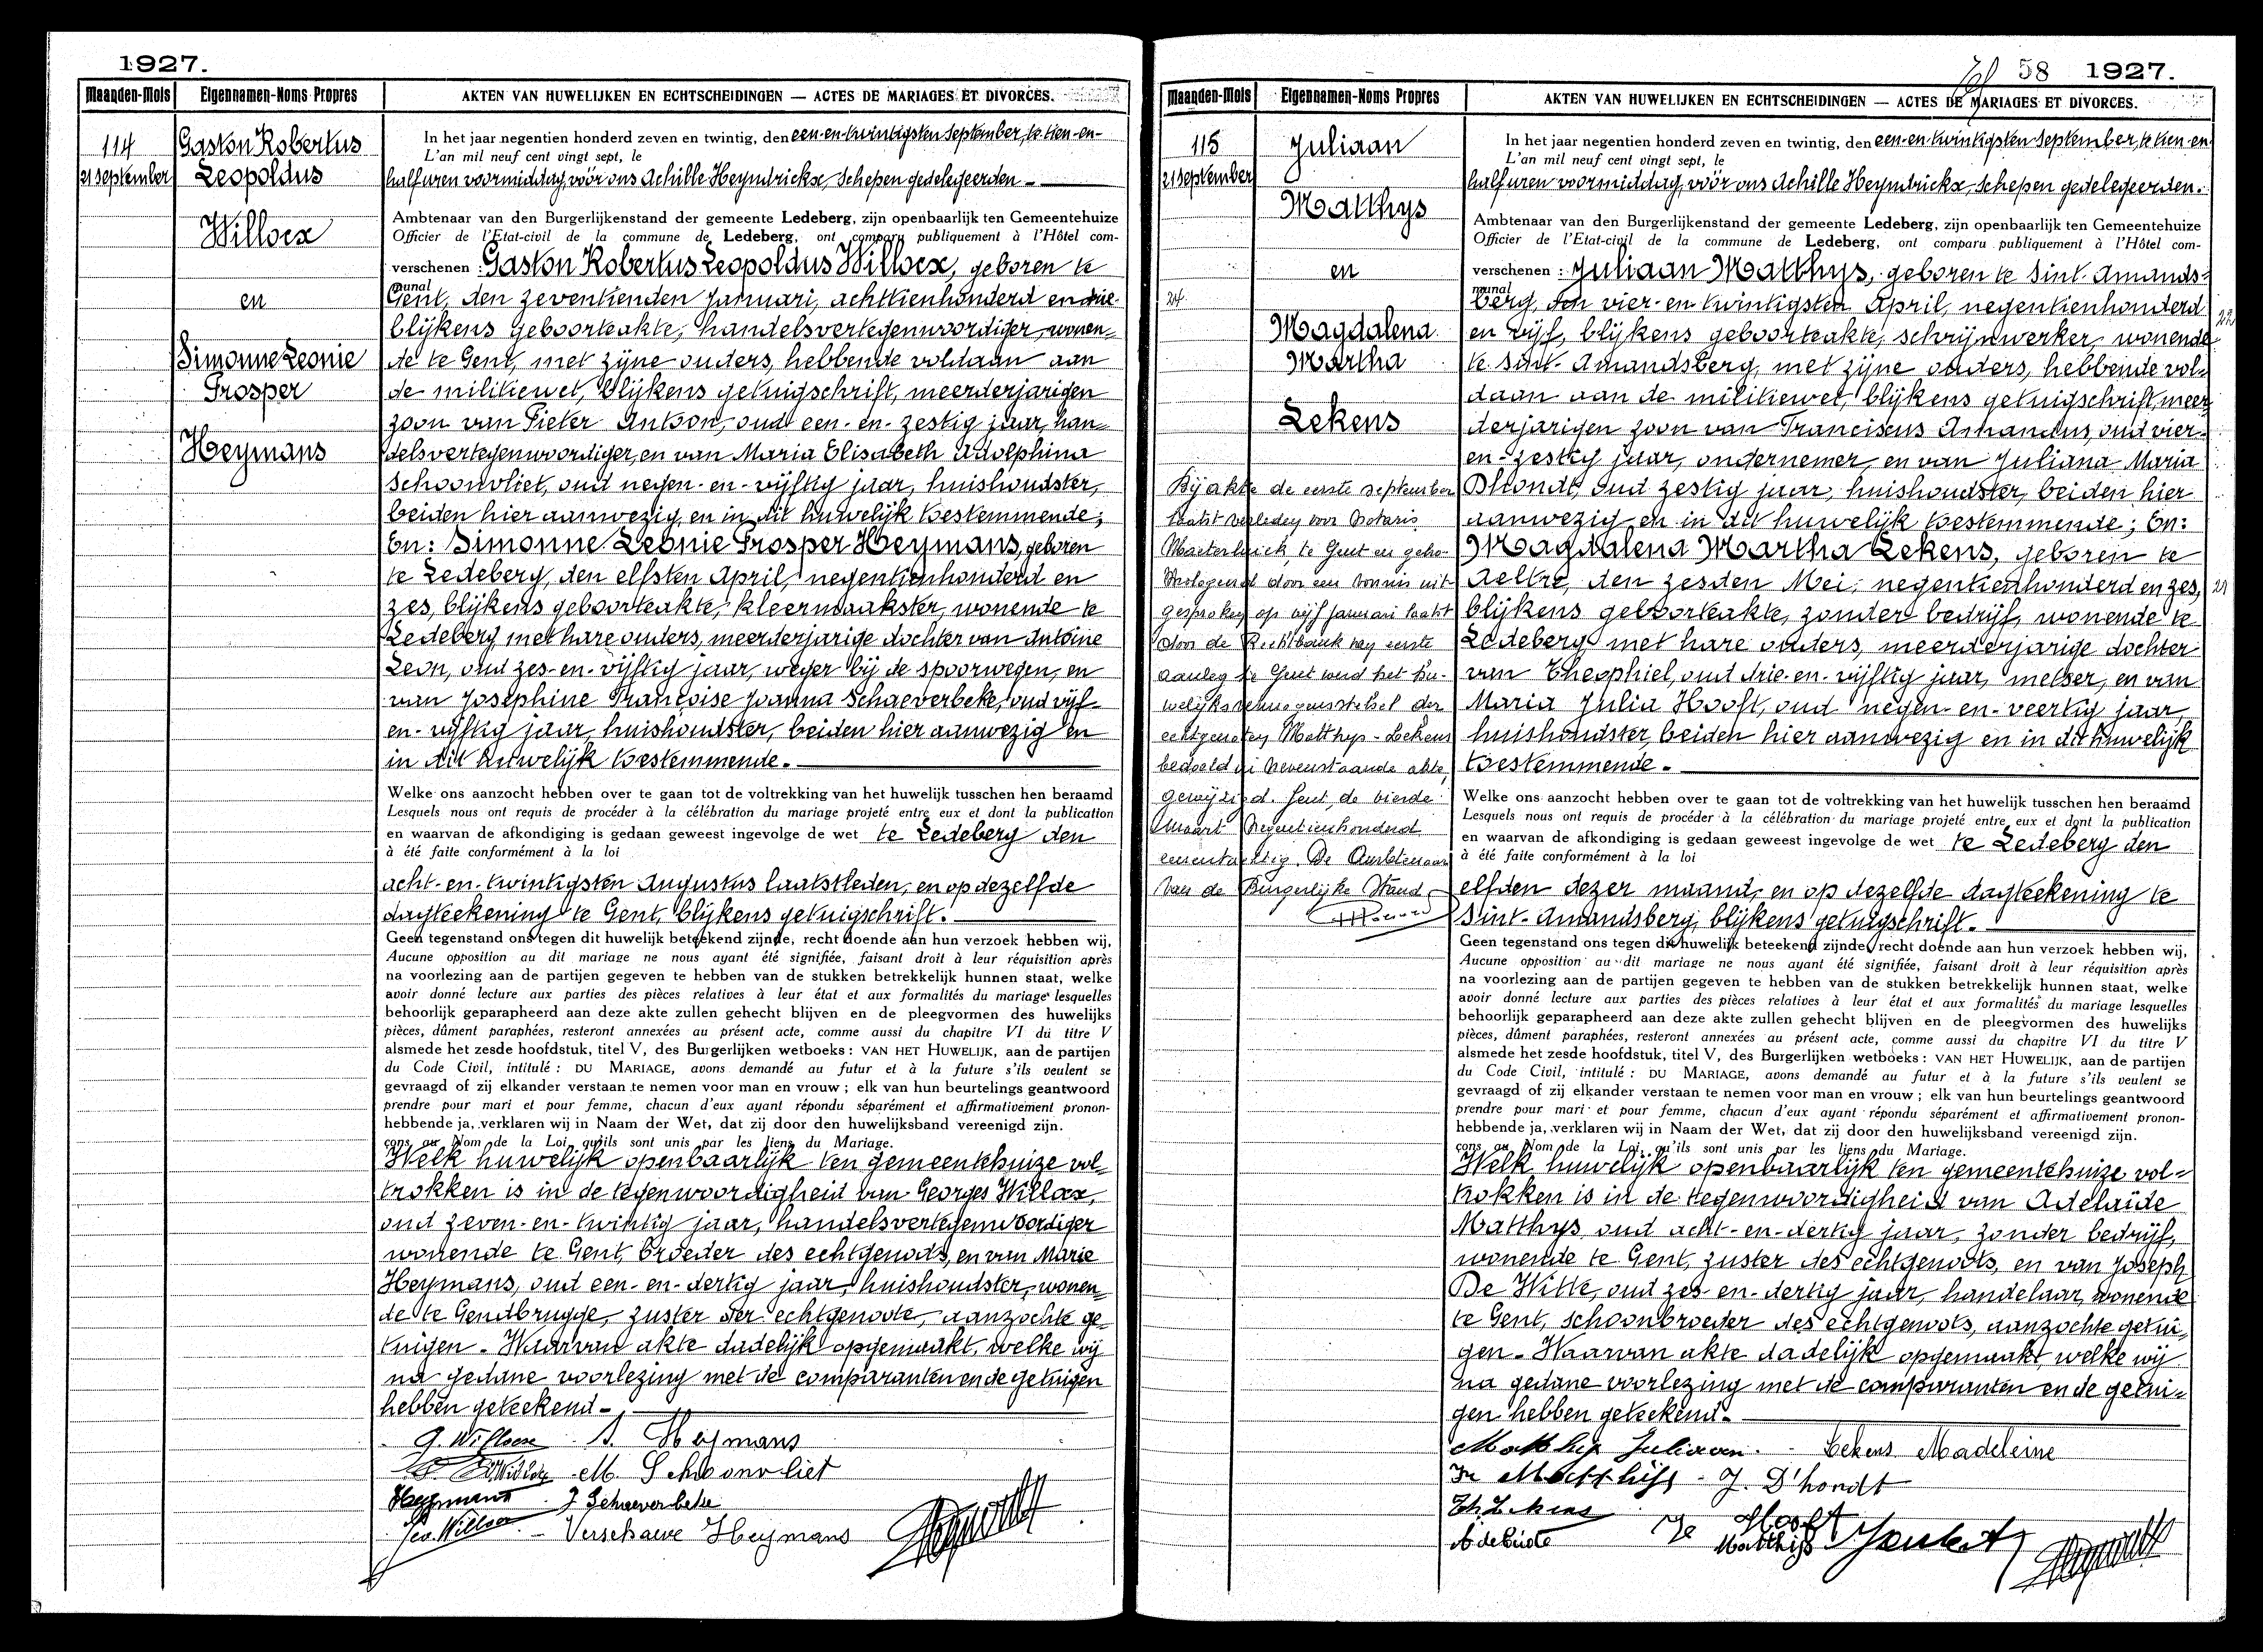 1927.
Maanden-Mois Eigennamen-Noms Propres AKTEN VAN HUWELIJKEN EN ECHTSCHEIDINGEN — ACTES DE MARIAGES ET DIVORCES.
114
21 September
Gaston Robertus
Leopoldus
Willocx
en
Simonne Leonie
Prosper
Heymans
In het jaar negentien honderd zeven en twintig, den een-en-twintigsten September, te tien-en-
L'an mil neuf cent vingt sept, le
half uren voormiddag, vóór ons Achille Heyndrickx, Schepen gedelegeerden -
Ambtenaar van den Burgerlijkenstand der gemeente Ledeberg, zijn openbaarlijk ten Gemeentehuize
Officier de l'Etat-civil de la commune de Ledeberg, ont comparu publiquement à l'Hôtel com-
verschenen : Gaston Robertus Leopoldus Willocx, geboren te
munal
Gent, den zeventienden Januari, achttienhonderd en drie
blijkens geboorteakte, handelsvertegenwoordiger, wonen-
de te Gent, met zijne ouders, hebbende voldaan aan
de militiewet, blijkens getuigschrift, meerderjarigen
zoon van Pieter Antoon, oud een-en-zestig jaar, han-
delsvertegenwoordiger, en van Maria Elisabeth Adolphina
Schoonvliet, oud negen-en-vijftig jaar, huishoudster,
beiden hier aanwezig en in dit huwelijk toestemmende;
En: Simonne Leonie Prosper Heymans, geboren
te Ledeberg, den elfsten April, negentienhonderd en
zes, blijkens geboorteakte, kleermaakster, wonende te
Ledeberg, met hare ouders, meerderjarige dochter van Antoine
Leon, oud zes-en-vijftig jaar, weger bij de spoorwegen, en
van Josephine Françoise Joanna Schaeverbeke, oud vijf-
en-vijftig jaar, huishoudster, beiden hier aanwezig en
in dit huwelijk toestemmende.
Welke ons aanzocht hebben over te gaan tot de voltrekking van het huwelijk tusschen hen beraamd
Lesquels nous ont requis de procéder à la célébration du mariage projeté entre eux et dont la publication
en waarvan de afkondiging is gedaan geweest ingevolge de wet te Ledeberg den
à été faite conformément à la loi
acht-en-twintigsten Augustus laatstleden, en op dezelfde
dagteekening te Gent, blijkens getuigschrift.
Geen tegenstand ons tegen dit huwelijk beteekend zijnde, recht doende aan hun verzoek hebben wij,
Aucune opposition au dit mariage ne nous ayant été signifiée, faisant droit à leur réquisition après
na voorlezing aan de partijen gegeven te hebben van de stukken betrekkelijk hunnen staat, welke
avoir donné lecture aux parties des pièces relatives à leur état et aux formalités du mariage lesquelles
behoorlijk geparapheerd aan deze akte zullen gehecht blijven en de pleegvormen des huwelijks
pièces, dûment paraphées, resteront annexées au présent acte, comme aussi du chapitre VI du titre V
alsmede het zesde hoofdstuk, titel V, des Burgerlijken wetboeks : VAN HET HUWELIJK, aan de partijen
du Code Civil, intitulé : DU MARIAGE, avons demandé au futur et à la future s'ils veulent se
gevraagd of zij elkander verstaan te nemen voor man en vrouw ; elk van hun beurtelings geantwoord
prendre pour mari et pour femme, chacun d'eux ayant répondu séparément et affirmativement pronon-
hebbende ja, verklaren wij in Naam der Wet, dat zij door den huwelijksband vereenigd zijn.
çons au Nom de la Loi qu'ils sont unis par les liens du Mariage.
Welk huwelijk openbaarlijk ten gemeentehuize vol-
trokken is in de tegenwoordigheid van Georges Willocx,
oud zeven-en-twintig jaar, handelsvertegenwoordiger
wonende te Gent, broeder des echtgenoots, en van Marie
Heymans, oud een-en-dertig jaar, huishoudster, wonen-
de te Gendbrugge, zuster der echtgenoote, aanzochte ge-
tuigen. Waarvan akte dadelijk opgemaakt, welke wij
na gedane voorlezing met de comparanten en de getuigen
hebben geteekend.
G. Willocx S. Heymans
M. Schoonvliet
Heymans J Schaeverbeke
Geo. Willocx Verschauve Heymans
58 1927.
Maanden-Mois Eigennamen-Noms Propres AKTEN VAN HUWELIJKEN EN ECHTSCHEIDINGEN — ACTES DE MARIAGES ET DIVORCES.
115
21 September
Juliaan
Matthys
en
24
Magdalena
Martha
Lekens
Bij akte de eerste september
laatst verleden voor Notaris
Maeterlinck te Gent en geho-
mologeerd door een vonnis uit
gesproken op vijf januari laatst
door de Rechtbank van eerste
aanleg te Gent werd het hu-
welijksvermogensstelsel der
echtgenoten Matthys-Lekens
bedoeld in nevenstaande akte,
gewijzigd. Gent, de vierde
Maart negentienhonderd
eenentachtig. De Ambtenaar
van de Burgerlijke Stand,
In het jaar negentien honderd zeven en twintig, den een-en-twintigsten September, te tien-en-
L'an mil neuf cent vingt sept, le
half uren voormiddag, vóór ons Achille Heyndrickx, Schepen gedelegeerden.
Ambtenaar van den Burgerlijkenstand der gemeente Ledeberg, zijn openbaarlijk ten Gemeentehuize
Officier de l'Etat-civil de la commune de Ledeberg, ont comparu publiquement à l'Hôtel com-
verschenen : Juliaan Matthys, geboren te Sint-Amands-
munal
berg, den vier-en-twintigsten April, negentienhonderd
en vijf, blijkens geboorteakte, schrijnwerker, wonende
te Sint-Amandsberg, met zijne ouders, hebbende vol-
daan aan de militiewet, blijkens getuigschrift, meer-
derjarigen zoon van Franciscus Amandus, oud vier-
en-zestig jaar, ondernemer, en van Juliana Maria
Dhondt, oud zestig jaar, huishoudster, beiden hier
aanwezig en in dit huwelijk toestemmende; En:
Magdalena Martha Lekens, geboren te
Aeltre, den zesden Mei, negentienhonderd en zes,
blijkens geboorteakte, zonder bedrijf, wonende te
Ledeberg met hare ouders, meerderjarige dochter
van Theophiel, oud drie-en-vijftig jaar, metser, en van
Maria Julia Hooft, oud negen-en-veertig jaar,
huishoudster, beiden hier aanwezig en in dit huwelijk
toestemmende.
Welke ons aanzocht hebben over te gaan tot de voltrekking van het huwelijk tusschen hen beraamd
Lesquels nous ont requis de procéder à la célébration du mariage projeté entre eux et dont la publication
en waarvan de afkondiging is gedaan geweest ingevolge de wet te Ledeberg den
à été faite conformément à la loi
elfden dezer maand, en op dezelfde dagteekening te
Sint-Amandsberg, blijkens getuigschrift.
Geen tegenstand ons tegen dit huwelijk beteekend zijnde, recht doende aan hun verzoek hebben wij,
Aucune opposition au dit mariage ne nous ayant été signifiée, faisant droit à leur réquisition après
na voorlezing aan de partijen gegeven te hebben van de stukken betrekkelijk hunnen staat, welke
avoir donné lecture aux parties des pièces relatives à leur état et aux formalités du mariage lesquelles
behoorlijk geparapheerd aan deze akte zullen gehecht blijven en de pleegvormen des huwelijks
pièces, dûment paraphées, resteront annexées au présent acte, comme aussi du chapitre VI du titre V
alsmede het zesde hoofdstuk, titel V, des Burgerlijken wetboeks : VAN HET HUWELIJK, aan de partijen
du Code Civil, intitulé : DU MARIAGE, avons demandé au futur et à la future s'ils veulent se
gevraagd of zij elkander verstaan te nemen voor man en vrouw ; elk van hun beurtelings geantwoord
prendre pour mari et pour femme, chacun d'eux ayant répondu séparément et affirmativement pronon-
hebbende ja, verklaren wij in Naam der Wet, dat zij door den huwelijksband vereenigd zijn.
çons au Nom de la Loi qu'ils sont unis par les liens du Mariage.
Welk huwelijk openbaarlijk ten gemeentehuize vol-
trokken is in de tegenwoordigheid van Adelaïde
Matthys, oud acht-en-dertig jaar, zonder bedrijf,
wonende te Gent, zuster des echtgenoots, en van Joseph
De Witte, oud zes-en-dertig jaar, handelaar, wonende
te Gent, schoonbroeder des echtgenoots, aanzochte getui-
gen. Waarvan akte dadelijk opgemaakt, welke wij
na gedane voorlezing met de comparanten en de getui-
gen hebben geteekend.
Matthys Juliaan. Lekens Madeleine
Matthijs J. D'hondt
Th. Lekens Hooft
Adelaide Matthijs